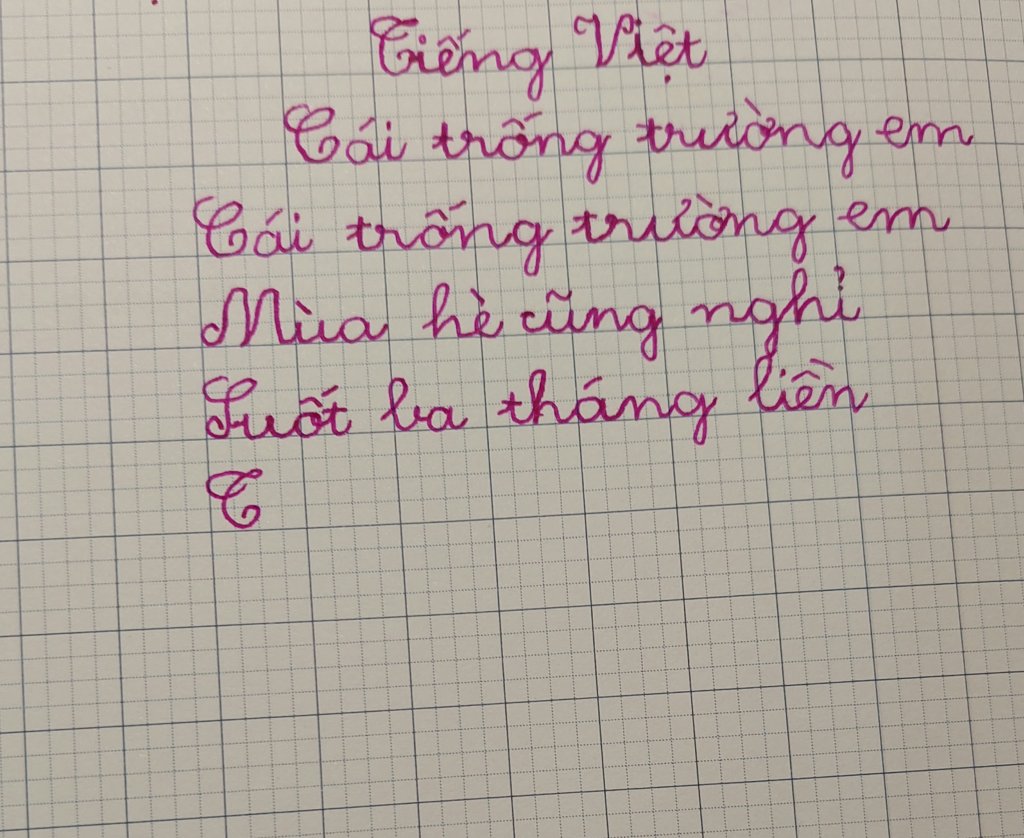 Tiếng Việt
Cái trống trường em
Cái trống trường em
Mùa hè cũng nghỉ
Suốt ba tháng liền
T